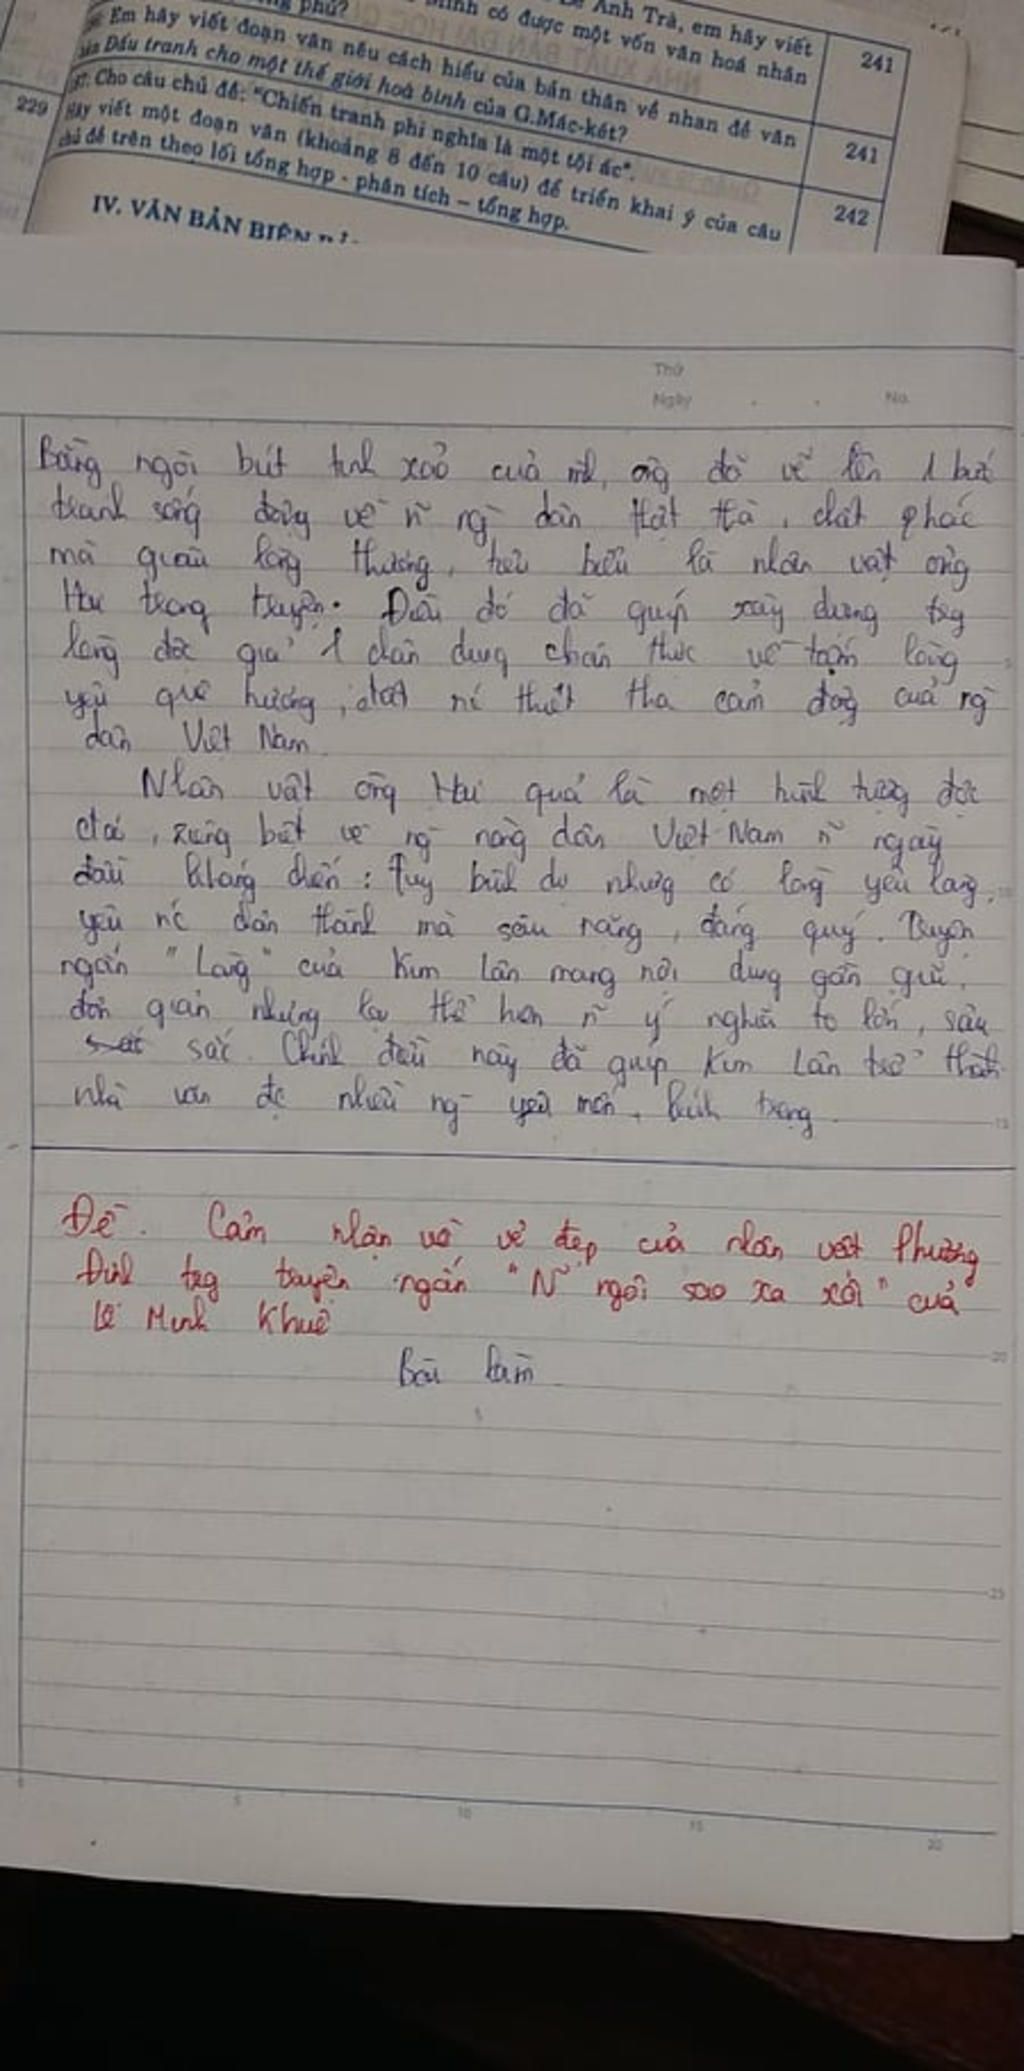 ng phú?
Anh Trà, em hãy viết
mình có được một vốn văn hoá nhân
241
Em hãy viết đoạn văn nêu cách hiểu của bản thân về nhan đề văn
bản Đấu tranh cho một thế giới hoà bình của G.Mác-két?
241
37. Cho câu chủ đề: "Chiến tranh phi nghĩa là một tội ác".
Hãy viết một đoạn văn (khoảng 8 đến 10 câu) để triển khai ý của câu
chủ đề trên theo lối tổng hợp - phân tích – tổng hợp.
242
229
IV. VĂN BẢN BIÊN
Thứ
Ngày . . No.
Bằng ngòi bút tinh xảo của mình, ông đã vẽ lên 1 bức
tranh sống động về n~ ng` dân thật thà, chất phác
mà giàu lòng thương, tiêu biểu là nhân vật ông
Hai trong truyện. Điều đó đã giúp xây dựng trg
lòng độc giả 1 chân dung chân thực về tấm lòng
yêu quê hương, đất nc thiết tha cảm động của ng`
dân Việt Nam.
Nhân vật ông Hai quả là một hình tượng độc
đáo, riêng biệt về ng` nông dân Việt Nam n~ ngày
đầu kháng chiến: Tuy bình dị nhưng có lòng yêu làng,
yêu nc chân thành mà sâu nặng, đáng quý. Truyện
ngắn "Làng" của Kim Lân mang nội dung gần gũi,
đơn giản nhưng lại thể hiện n~ ý nghĩa to lớn, sâu
sắc. Chính điều này đã giúp Kim Lân trở thành
nhà văn đc nhiều ng` yêu mến, kính trọng.
Đề. Cảm nhận về vẻ đẹp của nhân vật Phương
Định trg truyện ngắn "N~ ngôi sao xa xôi" của
Lê Minh Khuê
Bài làm
5
10
15
20
25
5 10 15 20